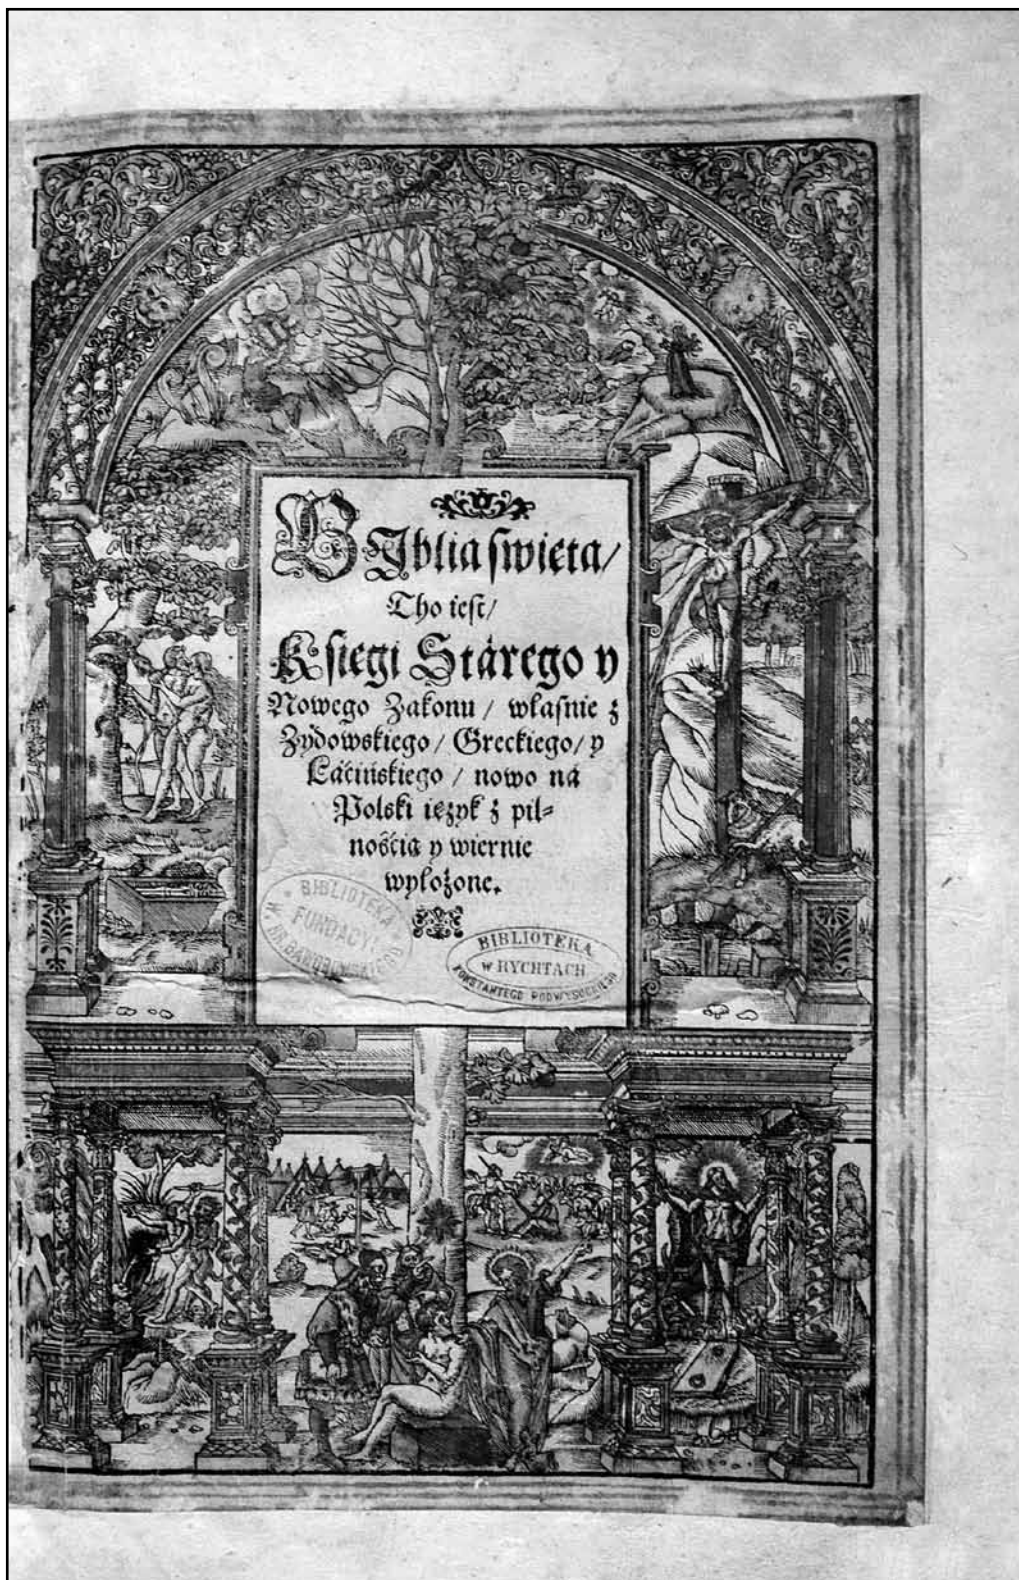 BJblia swięta/
Tho iest/
Księgi Stárego y
Nowego Zakonu / własnie z
Zydowskiego / Greckiego / y
Łáćińskiego / nowo ná
Polski ięzyk z pil-
nośćią y wiernie
wyłożone.
BIBLIOTEKA
FUNDACYI
W. HR. BAWOROWSKIEGO
BIBLIOTEKA
w RYCHTACH
KONSTANTEGO PODWYSOCKIEGO